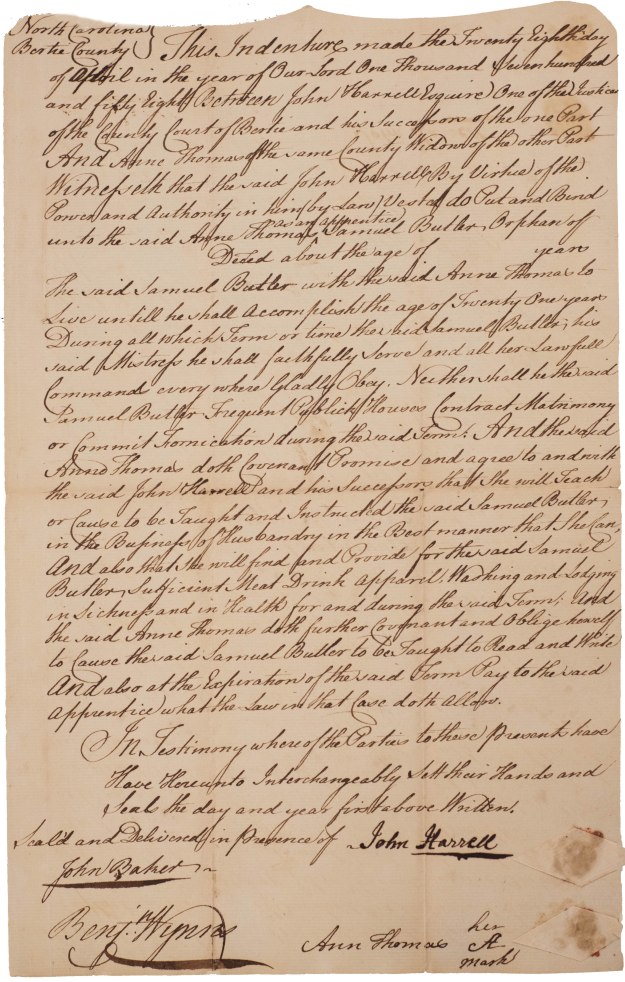 North Carolina
Bertie County } This Indenture made the Twenty Eighth day
of April in the year of Our Lord One Thousand Seven hundred
and fifty Eight Between John Harrell Esquire One of the Justices
of the County Court of Bertie and his Successors of the one Part
And Anne Thomas of the same County Widow of the other Part
Witnesseth that the said John Harrell By Virtue of the
Power and Authority in him by Law Vested do Put and Bind
as an apprentice
unto the said Anne Thomas Samuel Butler, Orphan of
Deced about the age of years
The said Samuel Butler with the said Anne Thomas to
Live untill he shall Accomplish the age of Twenty One years
During all which Term or time the said Samuel Butler, his
said Mistress he shall faithfully Serve and all her Lawfull
Command every where Gladly Obey. Neither shall he the said
Samuel Butler Frequent Publick Houses Contract Matrimony
or Commit Fornication during the said Term. And the said
Anne Thomas doth Covenant Promise and agree to and with
the said John Harrell and his Successors that She will Teach
or Cause to be Taught and Instructed the said Samuel Butler,
in the Business of Husbandry in the Best manner that She Can,
And also that She will find and Provide for the said Samuel
Butler, Sufficient Meat Drink Apparel Washing and Lodging
in Sickness and in Health for and during the said Term; And
the said Anne Thomas doth further Covenant and Oblige herself
to Cause the said Samuel Butler to be Taught to Read and Write
And also at the Expiration of the said Term Pay to the said
Apprentice what the Law in that Case doth Allow.
In Testimony whereof the Parties to these Present have
Have Hereunto Interchangeably Sett their Hands and
Seals the day and year first above Written.
Seal'd and Delivered in Presence of John Harrell
John Baker
Benj.n Wynns
her
Ann Thomas A
mark